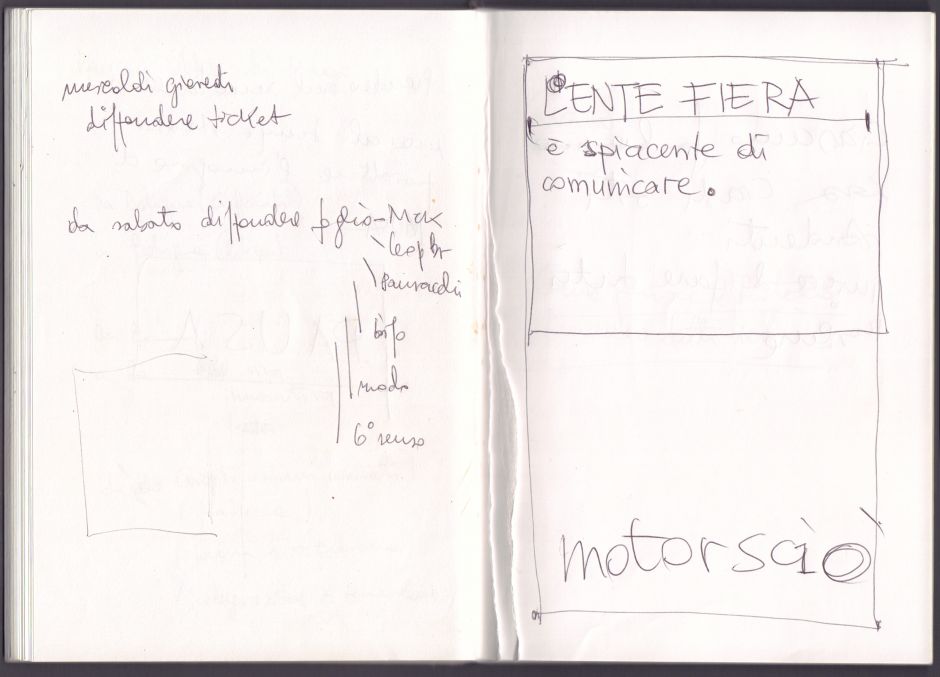 mercoldì giovedì
diffondere ticket
da sabato diffondere foglio - Mak
bifo
modo
6° senso
L'ENTE FIERA
è spiacente di
comunicare.
motorsciò